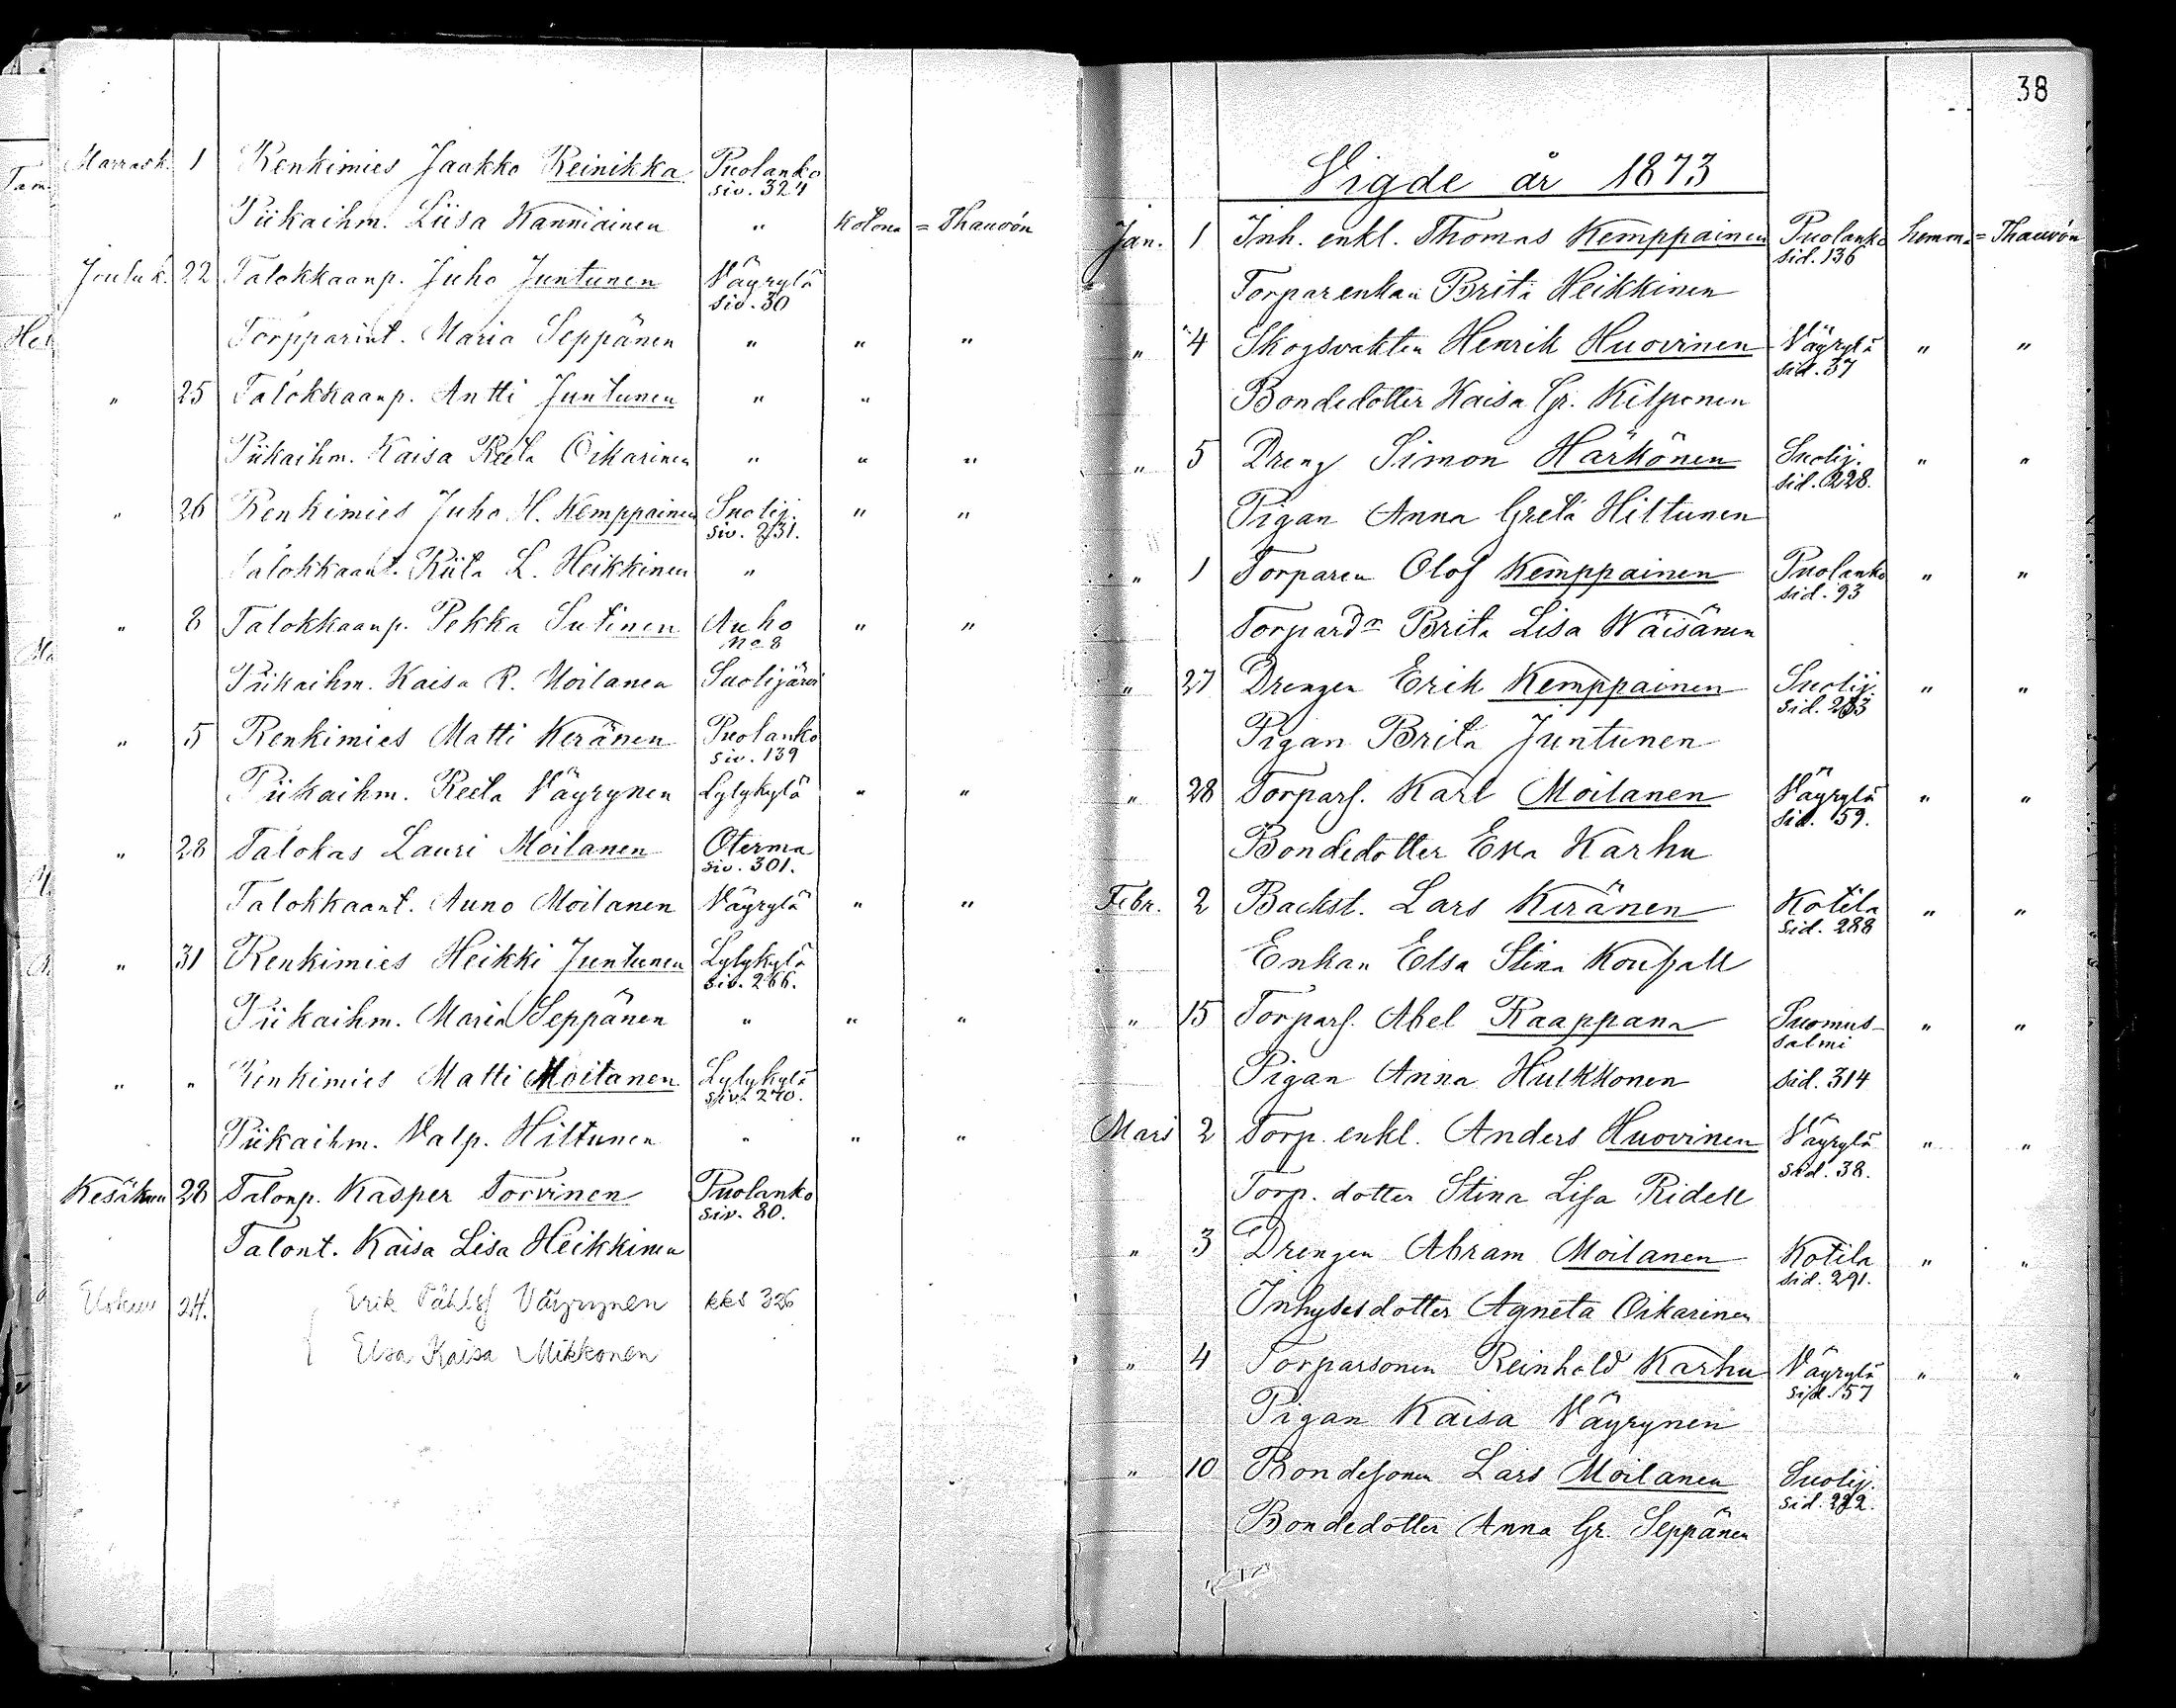 Marrask. 1 Renkimies Jaakko Reinikka Puolanko siv. 324
Piikaihm. Liisa Kanniainen " kotona = Thauvón
Jouluk. 22 Talokkaanp. Juho Juntunen Väyrylä siv. 30
Torpparint. Maria Seppänen " " "
" 25 Talokkaanp. Antti Juntunen " "
Piikaihm. Kaisa Reeta Oikarinen " " "
" 26 Renkimies Juho H. Kemppainen Suolij. siv. 231. " "
Talokkaant. Riita L. Heikkinen "
" 8 Talokkaanp. Pekka Sutinen Auho No 8 " "
Piikaihm. Kaisa R. Moilanen Suolijärvi
" 5 Renkimies Matti Keränen Puolanko siv. 139
Piikaihm. Reeta Väyrynen Lylykylä " "
" 28 Talokas Lauri Moilanen Oterma siv. 301.
Talokkaant. Auno Moilanen Väyrylä " "
" 31 Renkimies Heikki Juntunen Lylykylä siv. 266.
Piikaihm. Maria Seppänen " " "
" " Renkimies Matti Moilanen Lylykylä siv. 270.
Piikaihm. Valp. Hiltunen " " "
Kesäkuu 28 Talonp. Kasper Torvinen Puolanko siv. 80.
Talont. Kaisa Lisa Heikkinen
Elokuu 24. Erik Påhlsf Väyrynen kks 326
Elsa Kaisa Mikkonen
38
Vigde år 1873
Jan. 1 Inh. enkl. Thomas Kemppainen Puolanko sid. 136 hemma = Thauvón
Torparenkan Brita Heikkinen
" 4 Skogsvakten Henrik Huovinen Väyrylä sid. 37 " "
Bondedotter Kaisa Gr. Kilponen
" 5 Dreng Simon Härkönen Suolij. sid. 228. " "
Pigan Anna Greta Hiltunen
" 1 Torparen Olof Kemppainen Puolanko sid. 93 " "
Torpardr Brita Lisa Wäisänen
" 27 Drengen Erik Kemppainen Suolij. sid. 233 " "
Pigan Brita Juntunen
" 28 Torpars. Karl Moilanen Väyrylä sid. 59. " "
Bondedotter Eva Karhu
Febr. 2 Backst. Lars Keränen Kotila sid. 288 " "
Enkan Elsa Stina
" 15 Torpars. Abel Kaappana Suomussalmi " "
Pigan Anna Hulkkonen sid. 314
Mars 2 Torp. enkl. Anders Huovinen Väyrylä sid. 38. " "
Torp. dotter Stina Lisa Ridell
" 3 Drengen Abram Moilanen Kotila sid. 291. " "
Inhysesdotter Agneta Oikarinen
" 4 Torparsonen Reinhold Karhu Väyrylä sid. 57 " "
Pigan Kaisa Väyrynen
" 10 Bondesonen Lars Moilanen Suolij. sid. 222.
Bondedotter Anna Gr. Seppänen